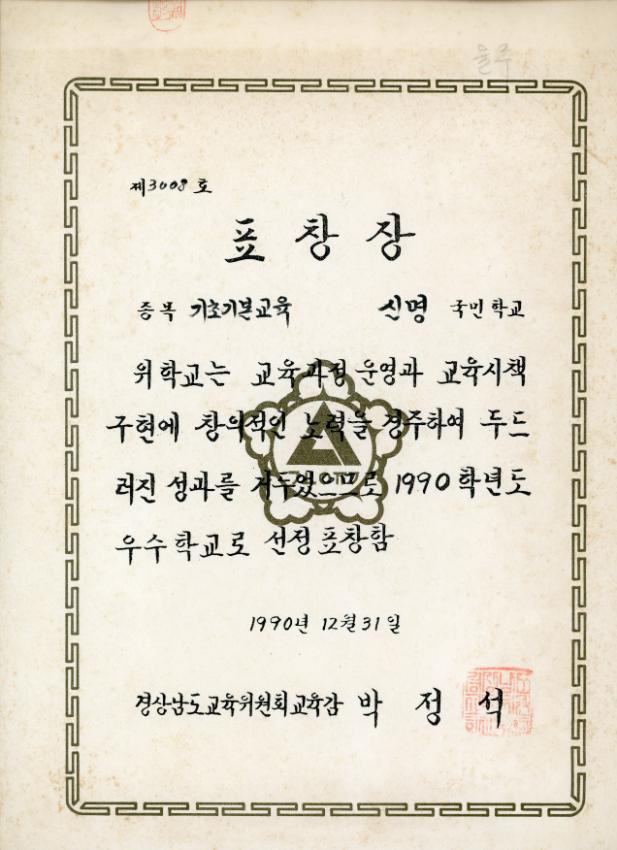 울주
제3008호
표창장
종목 기초기본교육 신명 국민학교
위학교는 교육과정 운영과 교육시책
구현에 창의적인 노력을 경주하여 두드
러진 성과를 거두었으므로 1990학년도
우수학교로 선정 표창함
1990년 12월 31일
경상남도교육위원회교육감 박정석